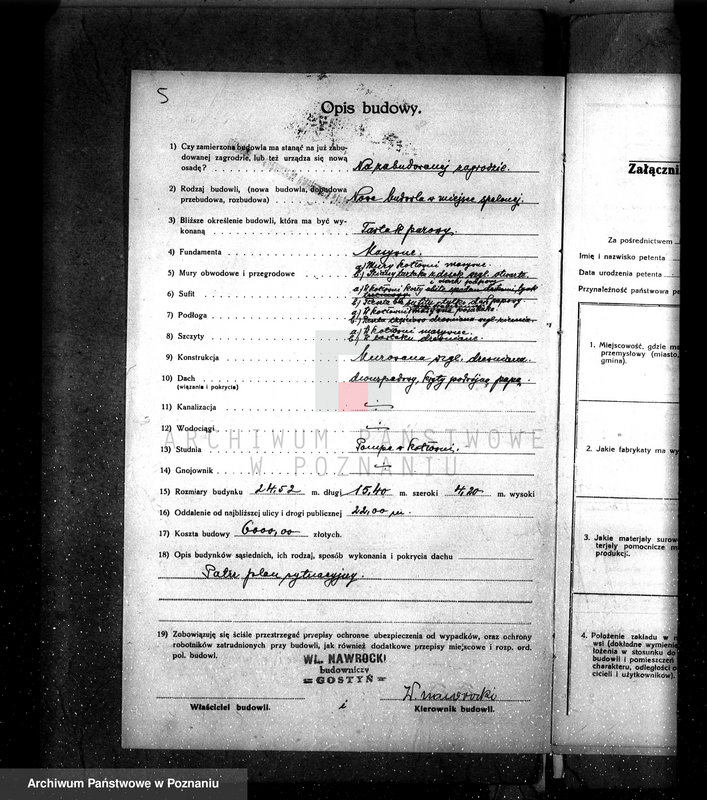 5
Opis budowy.
1) Czy zamierzona budowla ma stanąć na już zabu-
dowanej zagrodzie, lub też urządza się nową
osadę? Na zabudowanej zagrodzie.
2) Rodzaj budowli, (nowa budowla, dobudowa
przebudowa, rozbudowa) Nowa budowla w miejsce spalonej.
3) Bliższe określenie budowli, która ma być wy-
konaną Tartak parowy.
4) Fundamenta Masywne.
5) Mury obwodowe i przegrodowe a) Mury kotłowni masywne.
b) Ściany tartaku z desek wzgl. otwarte
6) Sufit
7) Podłoga
8) Szczyty a) W kotłowni masywne.
b) z tartaku drewniane.
9) Konstrukcja Murowana wzgl. drewniana.
10) Dach dwuspadowy, kryty podwójną papą.
(wiązanie i pokrycie)
11) Kanalizacja
12) Wodociągi
13) Studnia Pompa w kotłowni.
14) Gnojownik
15) Rozmiary budynku 24,52 m. długi 15,40 m. szeroki 4,20 m. wysoki
16) Oddalenie od najbliższej ulicy i drogi publicznej 22,00 m.
17) Koszta budowy 6000,00 złotych.
18) Opis budynków sąsiednich, ich rodzaj, sposób wykonania i pokrycia dachu
Patrz plan sytuacyjny.
19) Zobowiązuję się ściśle przestrzegać przepisy ochronne ubezpieczenia od wypadków, oraz ochrony
robotników zatrudnionych przy budowli, jak również dodatkowe przepisy miejscowe i rozp. ord.
pol. budowl.
WŁ. NAWROCKI
budowniczy
GOSTYŃ
W. Nawrocki
Właściciel budowli. i Kierownik budowli.
Załączni
Za pośrednictwem
Imię i nazwisko petenta
Data urodzenia petenta
Przynależność państwowa pe
1. Miejscowość, gdzie ma
przemysłowy (miasto,
gmina).
2. Jakie fabrykaty ma wy
3. Jakie materjały surow
terjały pomocnicze m
produkcji.
4. Położenie zakładu w m
wsi (dokładne wymienie
łożenia w stosunku do
budowli i pomieszczeń
charakteru, odległości o
cicieli i użytkowników).
ARCHIWUM PAŃSTWOWE
W POZNANIU
Archiwum Państwowe w Poznaniu